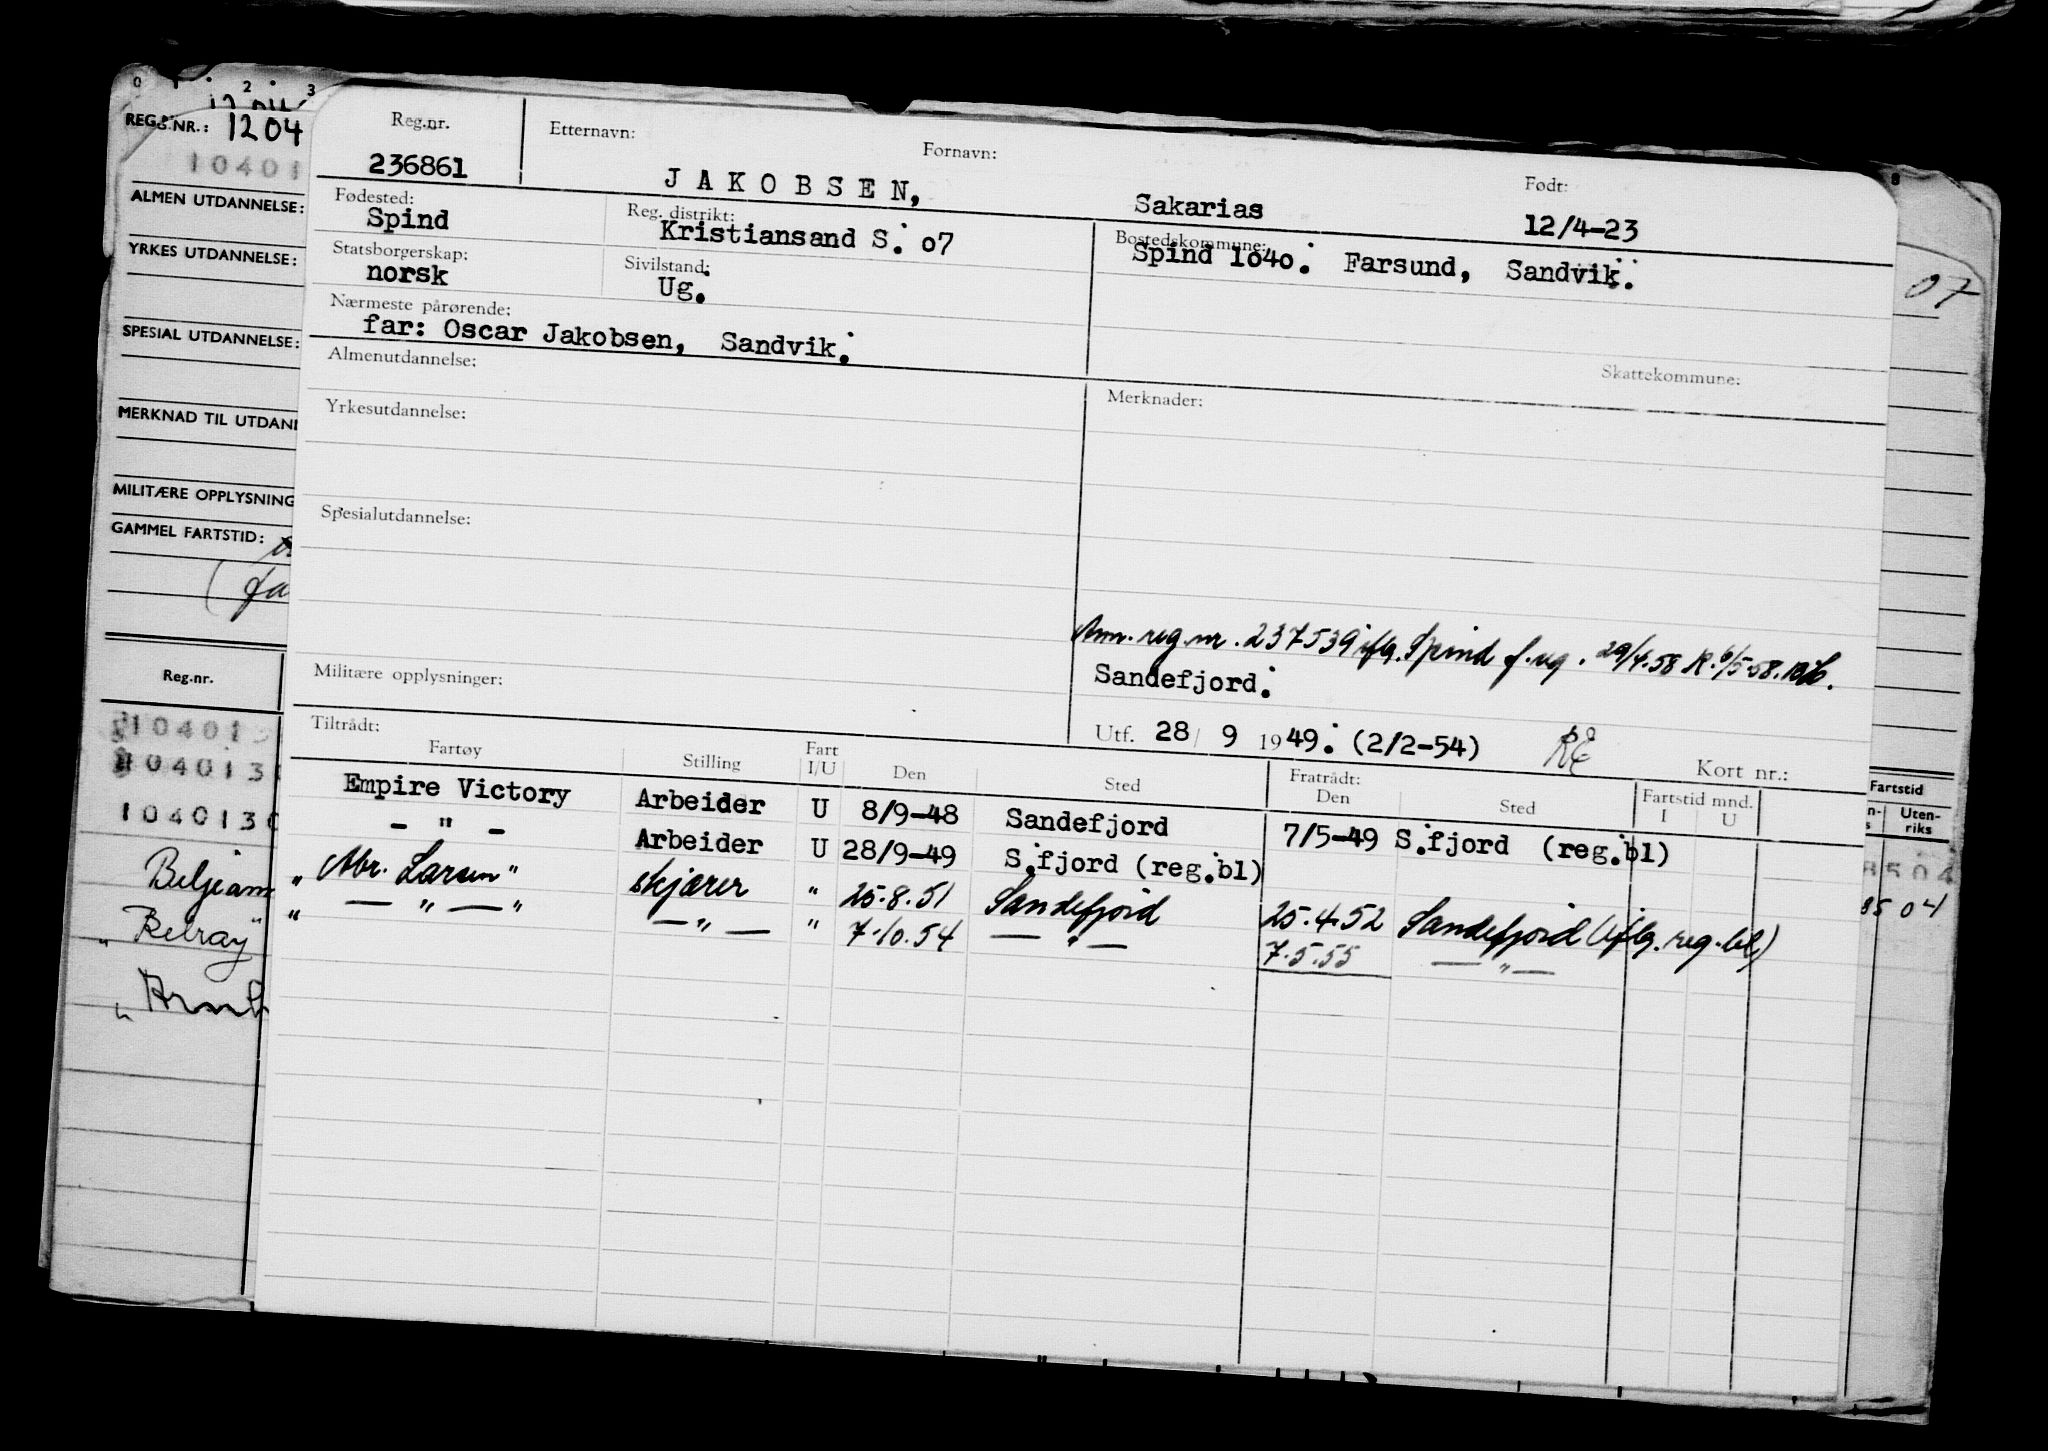 0 1 2 3
REG.NR.: 1204
10401
ALMEN UTDANNELSE:
YRKES UTDANNELSE:
SPESIAL UTDANNELSE:
MERKNAD TIL UTDAN
MILITÆRE OPPLYSNING
GAMMEL FARTSTID:
Reg.nr.
104013
104013
104013
Beljeam
„ Belray"
Reg.nr. Etternavn: Fornavn: Født:
236861 JAKOBSEN, Sakarias 12/4-23
Fødested: Reg. distrikt: Bostedskommune:
Spind Kristiansand S. o7 Spind 1o4o. Farsund, Sandvik.
Statsborgerskap: Sivilstand:
norsk Ug.
Nærmeste pårørende:
far: Oscar Jakobsen, Sandvik.
Skattekommune:
Almenutdannelse: Merknader:
Yrkesutdannelse:
Spesialutdannelse:
Ann. reg. nr. 237539 iflg. Spind f. reg. 29/4.58 R. 6/5-58.
Militære opplysninger: Sandefjord.
Utf. 28/ 9 1949. (2/2-54) Kort nr.:
Tiltrådt: Fratrådt: Fartstid mnd.
Fartøy Stilling Fart I/U Den Sted Den Sted I U
Empire Victory Arbeider U 8/9-48 Sandefjord 7/5-49 S.fjord (reg.bl)
- " - Arbeider U 28/9-49 S.fjord (reg.bl)
„ Abr. Larsen" skjærer " 25.8.51 Sandefjord 25.4.52 Sandefjord (iflg. reg. bl)
" — " — " — " — " 7.10.54 — " — 7.5.55 — " —
07
Fartstid
Uten-
riks
8504
85 04